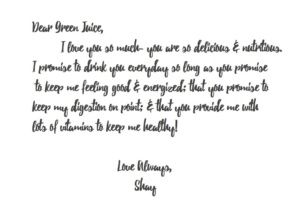 Dear Green Juice,
I love you so much- you are so delicious & nutritious.
I promise to drink you everyday so long as you promise
to keep me feeling good & energized; that you promise to
keep my digestion on point; & that you provide me with
lots of vitamins to keep me healthy!
Love Always,
Shay